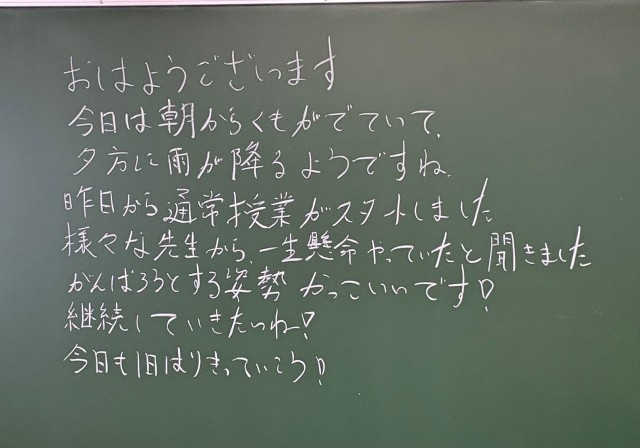 おはようございます
今日は朝からくもがでていて、
夕方に雨が降るようですね。
昨日から通常授業がスタートしました
様々な先生から、一生懸命やっていたと聞きました
がんばろうとする姿勢 かっこいいです!
継続していきたいね!
今日も1日はりきっていこう!